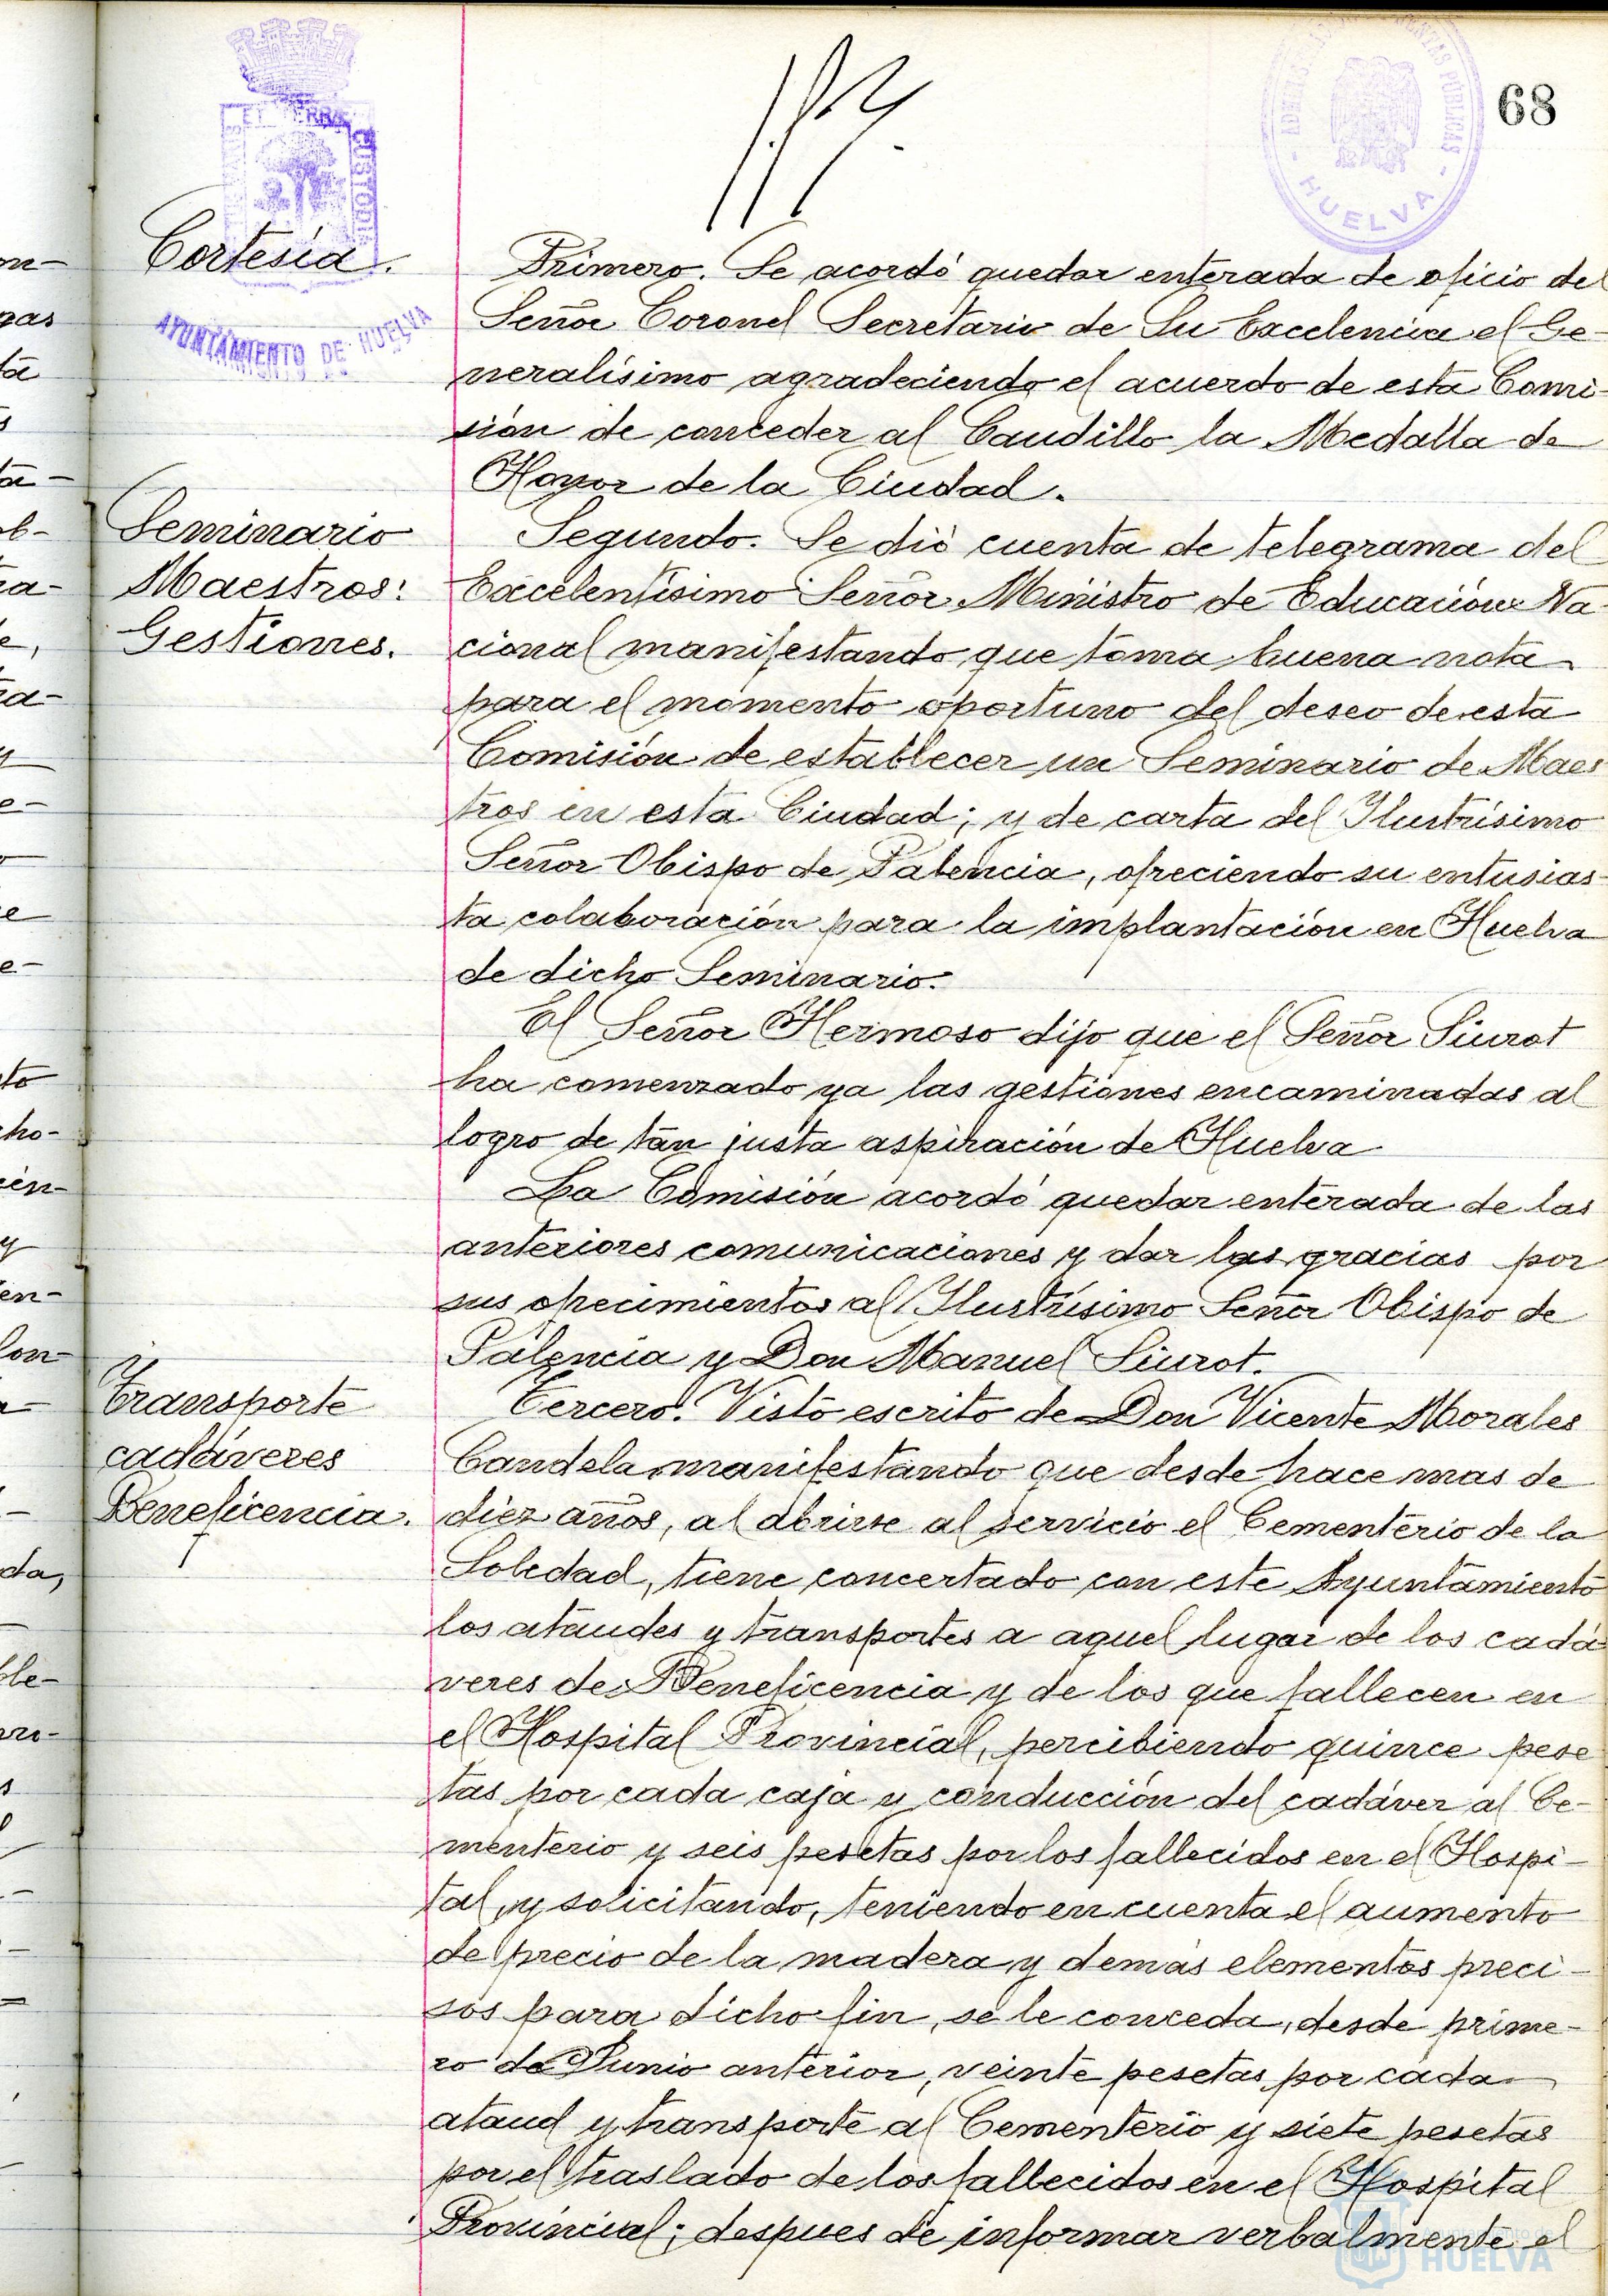 68
ET TERRAE
CUSTODIA
HUELVA
AYUNTAMIENTO DE HUELVA
Cortesía.
Primero. Se acordó quedar enterada de oficio del
Señor Coronel Secretario de Su Excelencia el Ge-
neralísimo agradeciendo el acuerdo de esta Comi-
sión de conceder al Caudillo la Medalla de
Honor de la Ciudad.
Seminario
Maestros:
Gestiones.
Segundo. Se dió cuenta de telegrama del
Excelentísimo Señor Ministro de Educación Na
cional manifestando que toma buena nota
para el momento oportuno del deseo de esta
Comisión de establecer un Seminario de Maes
tros en esta Ciudad; y de carta del Ilustrísimo
Señor Obispo de Palencia, ofreciendo su entusias-
ta colaboración para la implantación en Huelva
de dicho Seminario.
El Señor Hermoso dijo que el Señor Siurot
ha comenzado ya las gestiones encaminadas al
logro de tan justa aspiración de Huelva
La Comisión acordó quedar enterada de las
anteriores comunicaciones y dar las gracias por
sus ofrecimientos al Ilustrísimo Señor Obispo de
Palencia y Don Manuel Siurot.
Transporte
cadáveres
Beneficencia.
Tercero. Visto escrito de Don Vicente Morales
Candela manifestando que desde hace mas de
diez años, al abrirse al servicio el Cementerio de la
Soledad, tiene concertado con este Ayuntamiento
los ataudes y transportes a aquel lugar de los cadá
veres de Beneficencia y de los que fallecen en
el Hospital Provincial, percibiendo quince pese
tas por cada caja y conducción del cadáver al Ce-
menterio y seis pesetas por los fallecidos en el Hospi-
tal, y solicitando, teniendo en cuenta el aumento
de precio de la madera y demás elementos preci-
sos para dicho fin, se le conceda, desde prime-
ro de Junio anterior, veinte pesetas por cada
ataud y transporte al Cementerio y siete pesetas
por el traslado de los fallecidos en el Hospital
Provincial; despues de informar verbalmente el
Ayuntamiento de
HUELVA